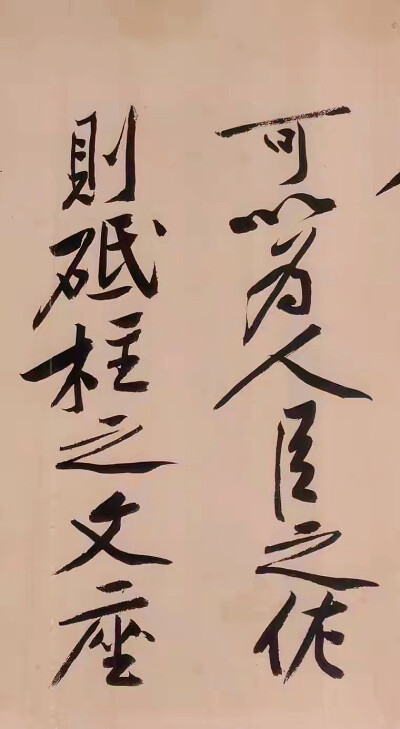 可以為人臣之作
則砥柱之文座